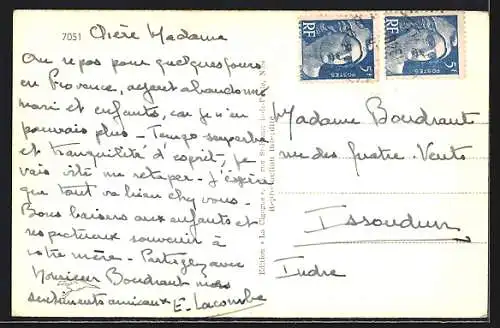 7051 Chère Madame
Au repos pour quelques jours
en Provence, ayant abandonné
mari et enfants, car je n'en
pouvais plus - Temps superbe
et tranquilité d'esprit, je
vais vite me retaper - J'espère
que tout va bien chez vous -
Bons baisers aux enfants et
respectueux souvenir à
votre mère - Partagez avec
Monsieur Boudrant nos
sentiments amicaux E. Lacombe
Edition "La Cigogne"
Reproduction interdite
RF
5F
POSTES
RF
5F
POSTES
Madame Boudrant
rue des Quatre-Vents
Issoudun
Indre